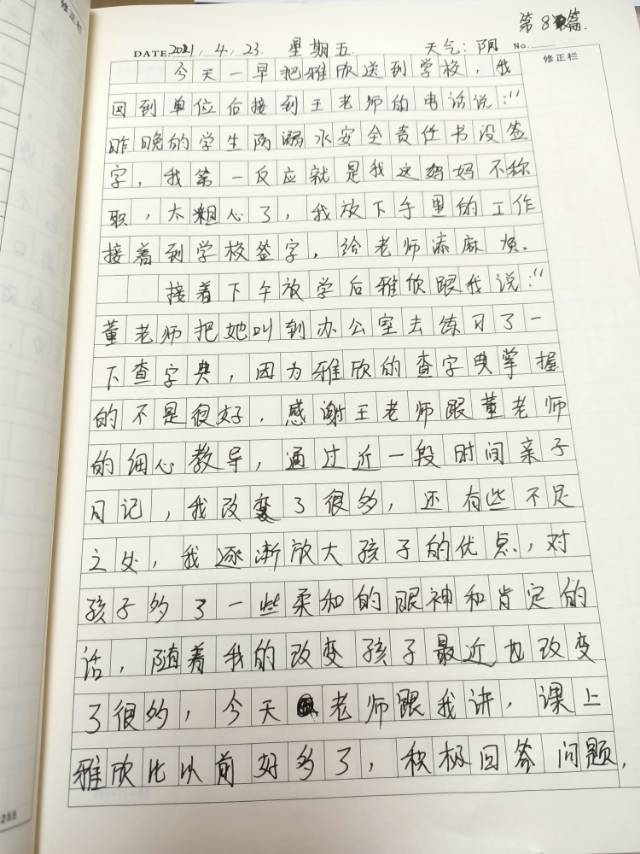 第8篇
修正栏
DATE 2021.4.23. 星期五 天气:阴 No.
修正栏
今天一早把雅欣送到学校,我
回到单位后接到王老师的电话说:“
昨晚的学生防溺水安全责任书没签
字,我第一反应就是我这妈妈不称
职,太粗心了,我放下手里的工作
接着到学校签字,给老师添麻烦.
接着下午放学后雅欣跟我说:“
董老师把她叫到办公室去练习了一
下查字典,因为雅欣的查字典掌握
的不是很好.感谢王老师跟董老师
的细心教导,通过近一段时间亲子
日记,我改变了很多,还有些不足
之处,我逐渐放大孩子的优点,对
孩子多了一些柔和的眼神和肯定的
话,随着我的改变孩子最近也改变
了很多,今天老师跟我讲,课上
雅欣比以前好多了,积极回答问题.